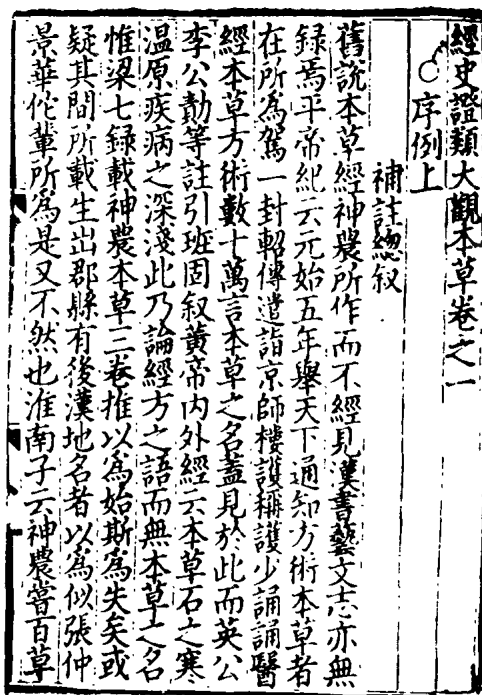 經史證類大觀本草卷之一
序例上
補註總叙
舊說本草經神農所作而不經見漢書藝文志亦無
録焉平帝紀云元始五年舉天下通知方術本草者
在所為駕一封軺傳遣詣京師樓護稱護少誦誦醫
經本草方術數十萬言本草之名蓋見於此而英公
李公勣等註引班固叙黃帝內外經云本草石之寒
温原疾病之深淺此乃論經方之語而無本草之名
惟梁七録載神農本草三卷推以為始斯為失矣或
疑其間所載生出郡縣有後漢地名者以為似張仲
景華佗軰所為是又不然也淮南子云神農嘗百草